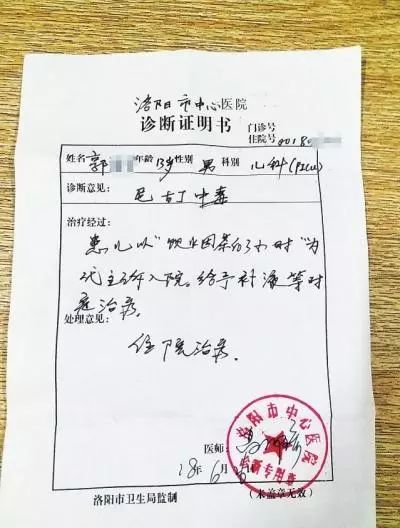 洛阳市中心医院
诊断证明书
门诊号
住院号 00180
姓名 郭 年龄 13岁 性别 男 科别 儿科(PICU)
诊断意见:
尼古丁中毒
治疗经过:
患儿以"饮业因茶的 小时"为
代主 入院。给予补液等对
症治疗。
处理意见:
住院治疗。
医师:
18年6月
洛阳市中心医院
诊断专用章
洛阳市卫生局监制
(未盖章无效)